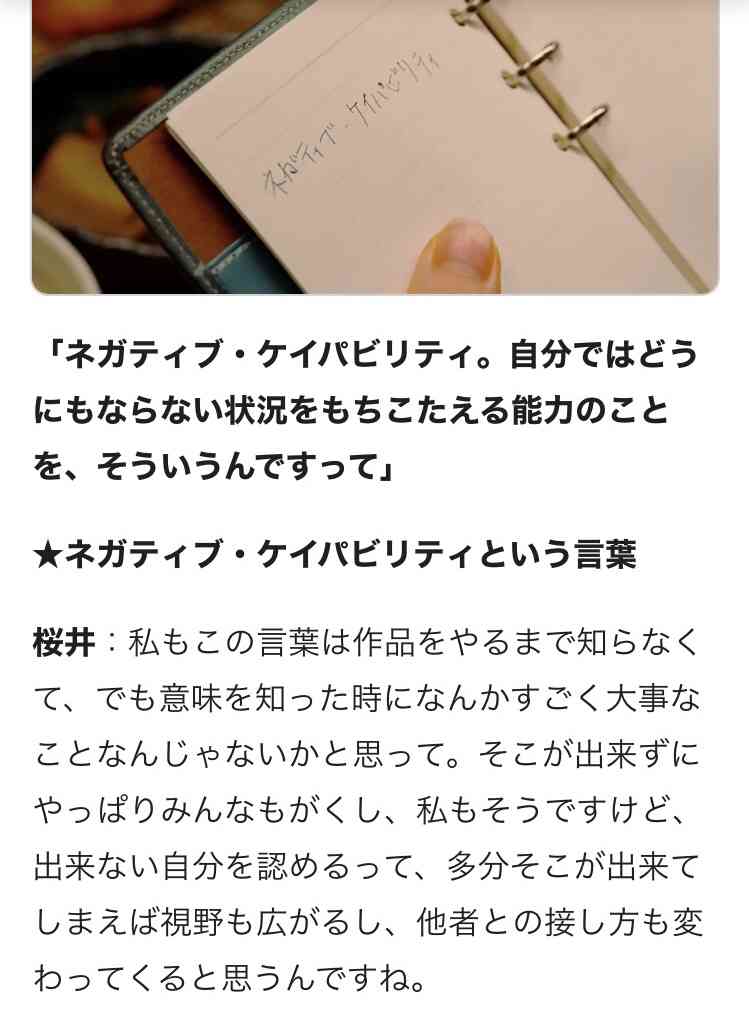 ネガティブ・ケイパビリティ
「ネガティブ・ケイパビリティ。自分ではどう
にもならない状況をもちこたえる能力のこと
を、そういうんですって」
★ネガティブ・ケイパビリティという言葉
桜井：私もこの言葉は作品をやるまで知らなく
て、でも意味を知った時になんかすごく大事な
ことなんじゃないかと思って。そこが出来ずに
やっぱりみんなもがくし、私もそうですけど、
出来ない自分を認めるって、多分そこが出来て
しまえば視野も広がるし、他者との接し方も変
わってくると思うんですね。